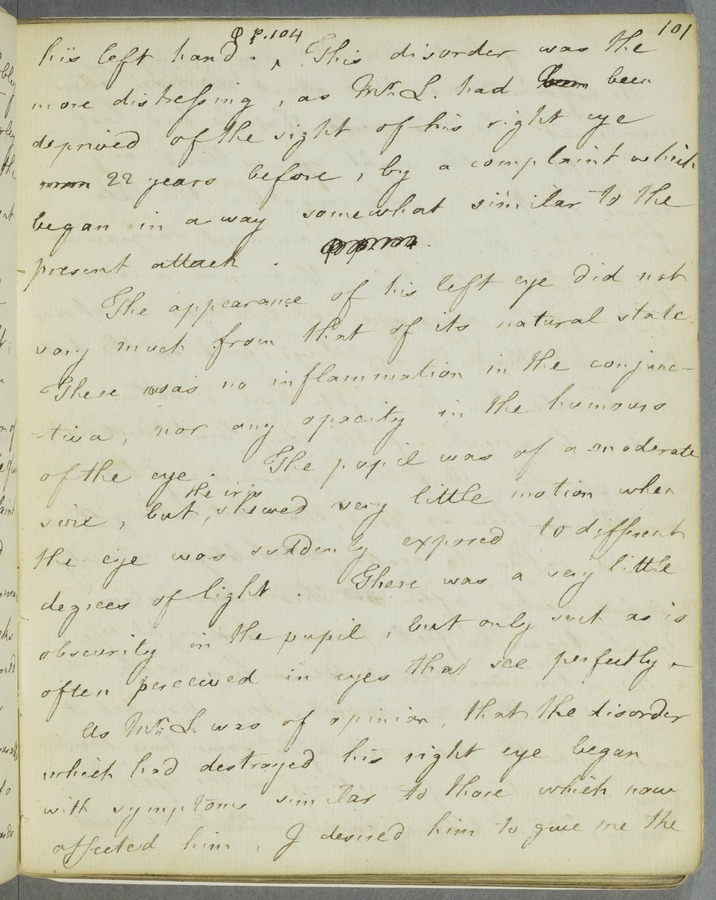 101
φ p. 104
his left hand. ‸ This disorder was the
more distressing, as Mr. L. had been been
deprived of the sight of his right eye
22 years before, by a complaint which
began in a way somewhat similar to the
present attack.
The appearance of his left eye did not
vary much from that of its natural state.
There was no inflammation in the conjunc-
-tiva, nor any opacity in the humours
of the eye. The pupil was of a moderate
the iris
size, but, shewed very little motion when
the eye was suddenly exposed to different
degrees of light. There was a very little
obscurity in the pupil, but only such as is
often perceived in eyes that see perfectly.
As Mr. L. was of opinion, that the disorder
which had destroyed his right eye began
with symptoms similar to those which now
affected him, I desired him to give me the